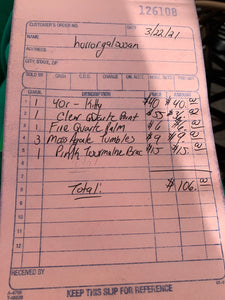 126108
CUSTOMER'S ORDER NO.
DATE 3/22/21
NAME horrorgalaxxan
ADDRESS
CITY, STATE, ZIP
SOLD BY CASH C.O.D. CHARGE ON ACCT. MDSE. RETD PAID OUT
QUAN. DESCRIPTION PRICE AMOUNT
1 1 40r - Kitty $40 $40.
2 1 Clear Quartz Point
3 1 Fire Quartz Palm $6 $6
4 3 Moss Agate Tumbles $9 $9
5 1 Pink Tourmaline Brac $15 $15.
6
7 Total: $106.
8
9
10
11
12
RECEIVED BY
KEEP THIS SLIP FOR REFERENCE